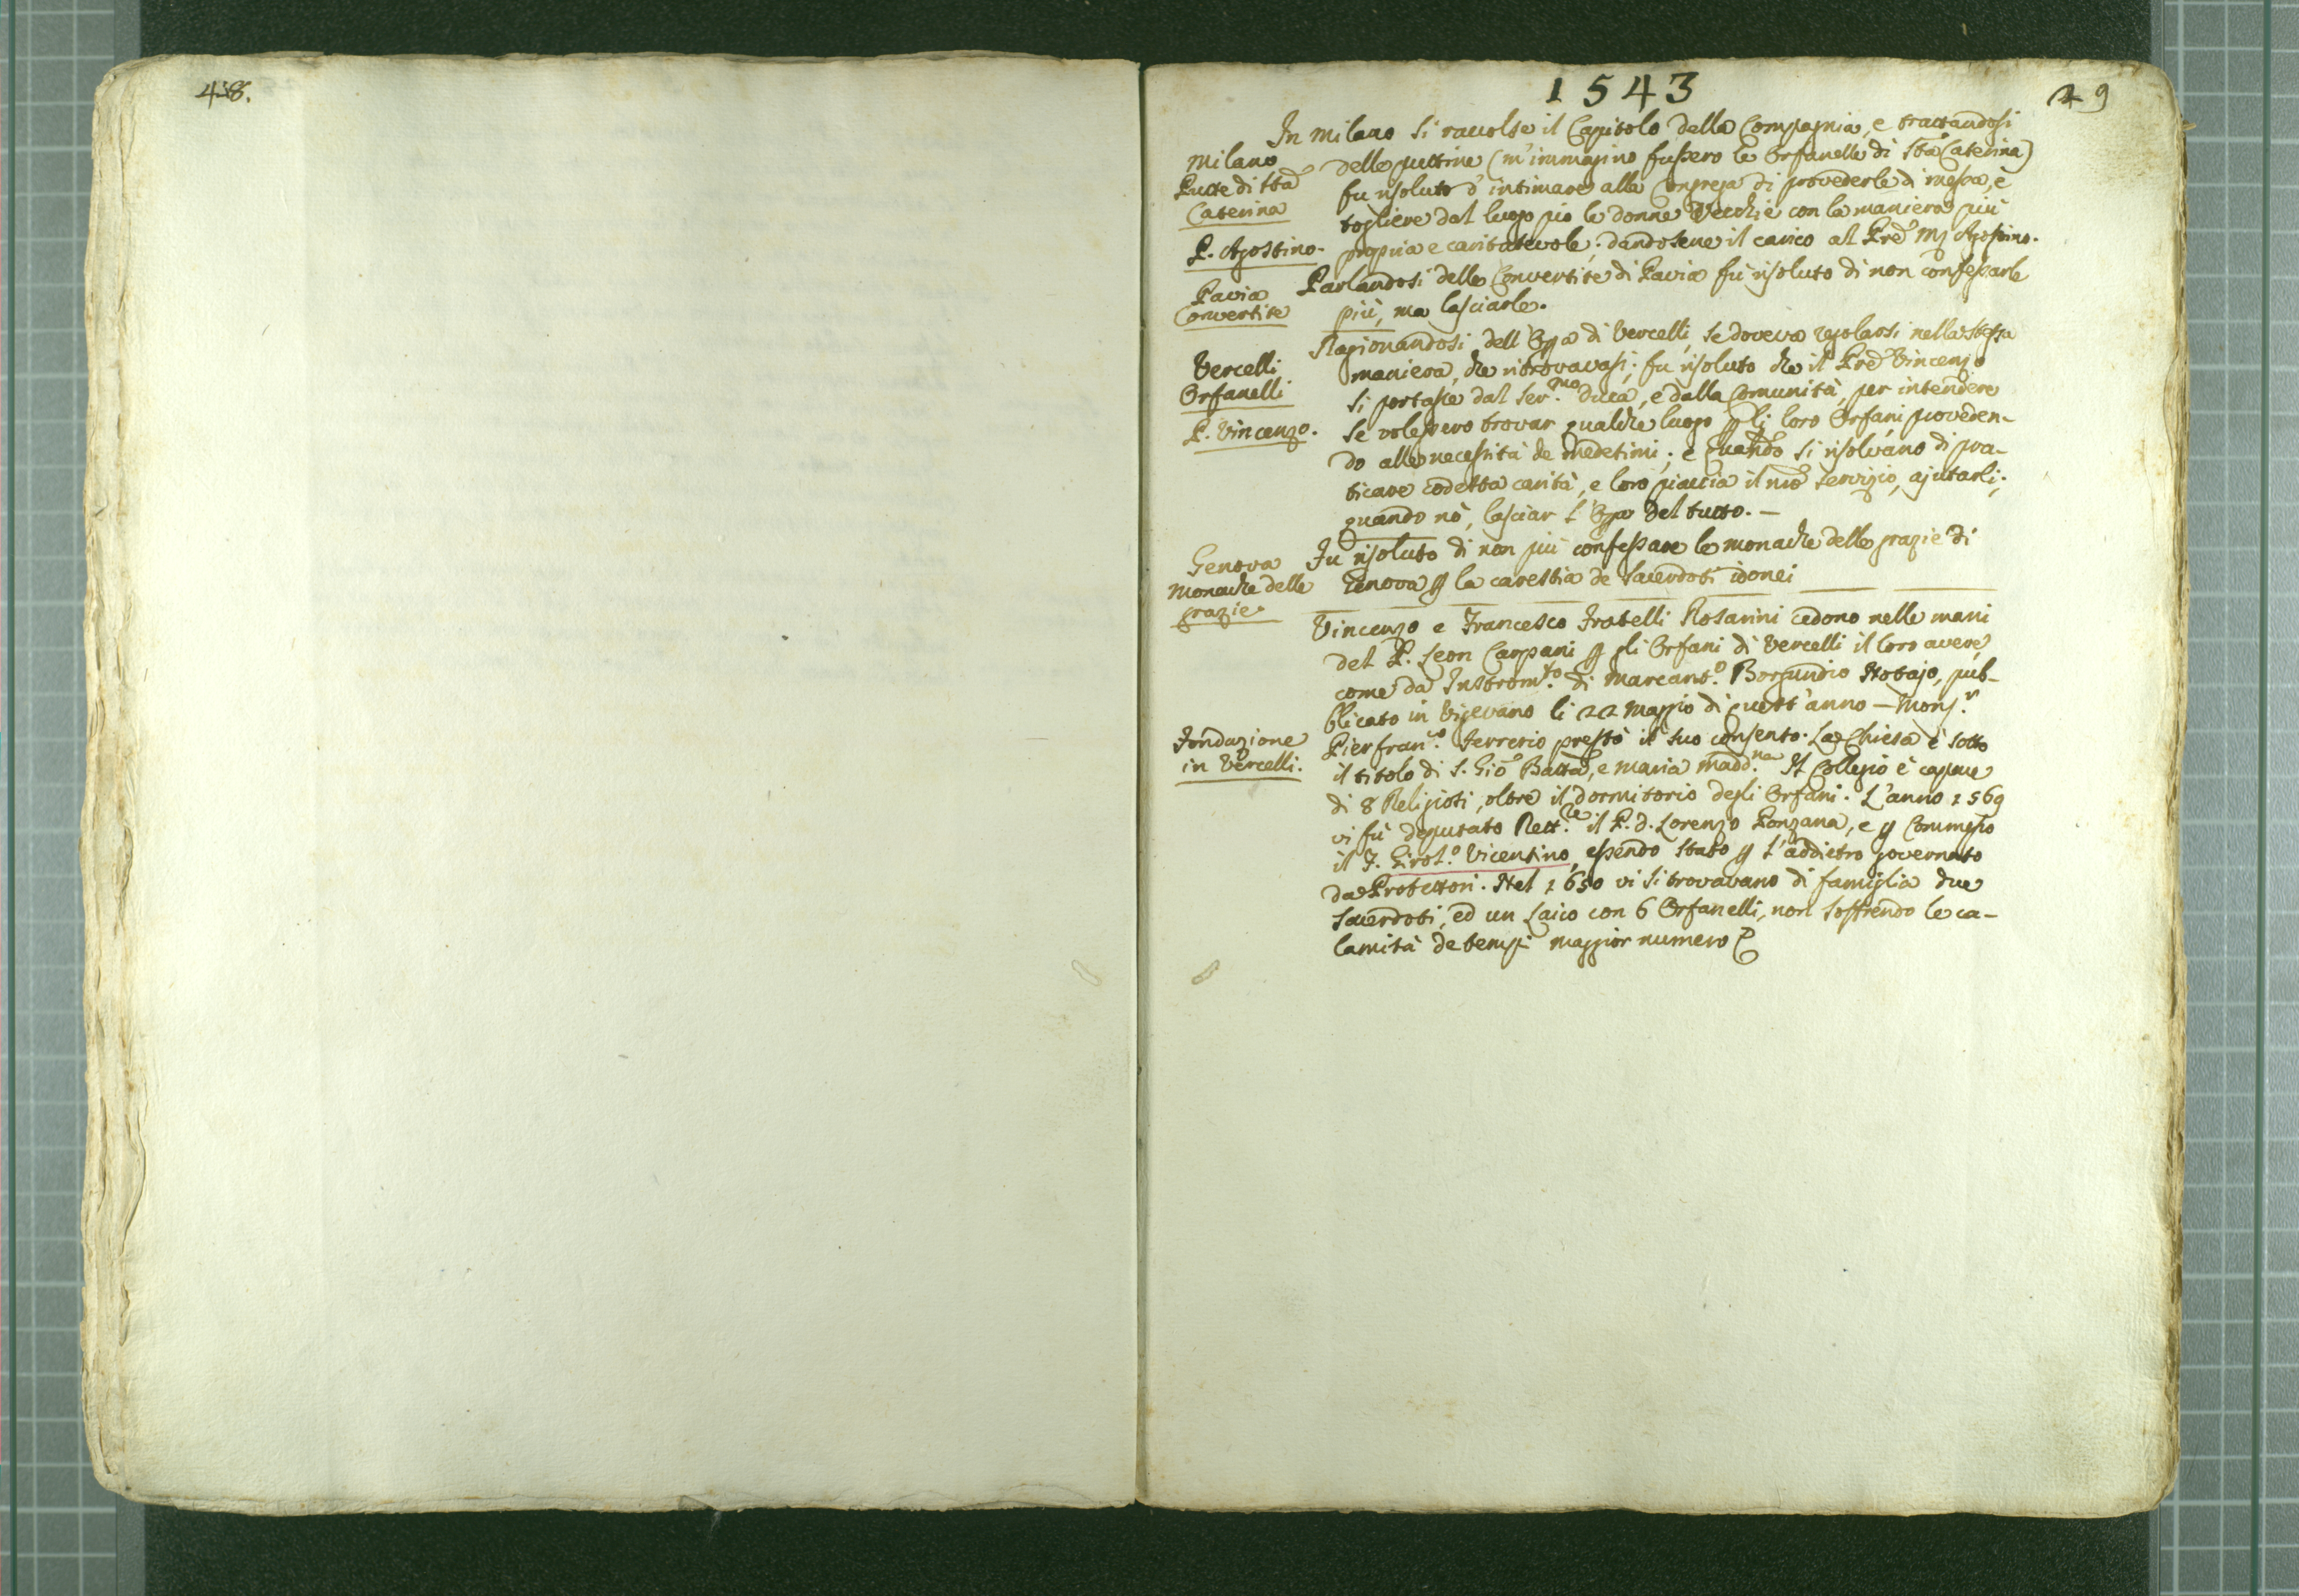 48.
1543
49
In Milano si raccolse il Capitolo della Compagnia, e trattandosi
Milano
delle puttine (m'immagino fussero le Orfanelle di Sta Caterina)
Putte di Sta
fu risoluto d'intimare alla Congrega di provederle di messa, e
Caterina
togliere dal luogo pio le donne Vecchie con la maniera più
P. Agostino.
propria e caritatevole; dandosene il carico al Pre Mj Agostino.
Pavia
Parlandosi delle Convertite di Pavia fù risoluto di non confessarle
Convertite
più, ma lasciarle.
Ragionandosi dell'Opa di Vercelli, se doveva regolarsi nella stessa
Vercelli
maniera, che ritrovavasi; fu risoluto che il Pre Vincenzo
Orfanelli
si portasse dal Ser.mo Duca, e dalla Comunità, per intendere
P. Vincenzo.
se volessero trovar qualche luogo p li loro Orfani, proveden-
do alle necessità de medesimi; e quando si risolvano di pra-
ticare codetta carità, e loro piaccia il nro servizio, ajutarli;
quando nò, lasciar l'Opa del tutto. —
Genova
Fu risoluto di non più confessare le monache delle grazie di
Monache delle
Genova p la carestia de Sacerdoti idonei
grazie.
Vincenzo e Francesco Fratelli Rosarini cedono nelle mani
del P. Leon Carpani p gli Orfani di Vercelli il loro avere,
come da Instrom.to di Marcant.o Borgundio Notajo, pub-
blicato in Vigevano li 22 Maggio di quest'anno — Mons.r
Fondazione
Pierfran.o Ferrerio prestò il suo consento. La Chiesa è sotto
in Vercelli.
il titolo di S. Gio Batta, e Maria Madd.na Il Collegio è capace
di 8 Religiosi, oltre il dormitorio degli Orfani. L'anno 1569
vi fù deputato Rett.re il P. d. Lorenzo Ponzana, e p Commesso
il F. Girol.o Vicentino, essendo stato p l'addietro governato
da Protettori. Nel 1650 vi si trovavano di famiglia due
Sacerdoti, ed un Laico con 6 Orfanelli, non soffrendo le ca-
lamità de tempi maggior numero